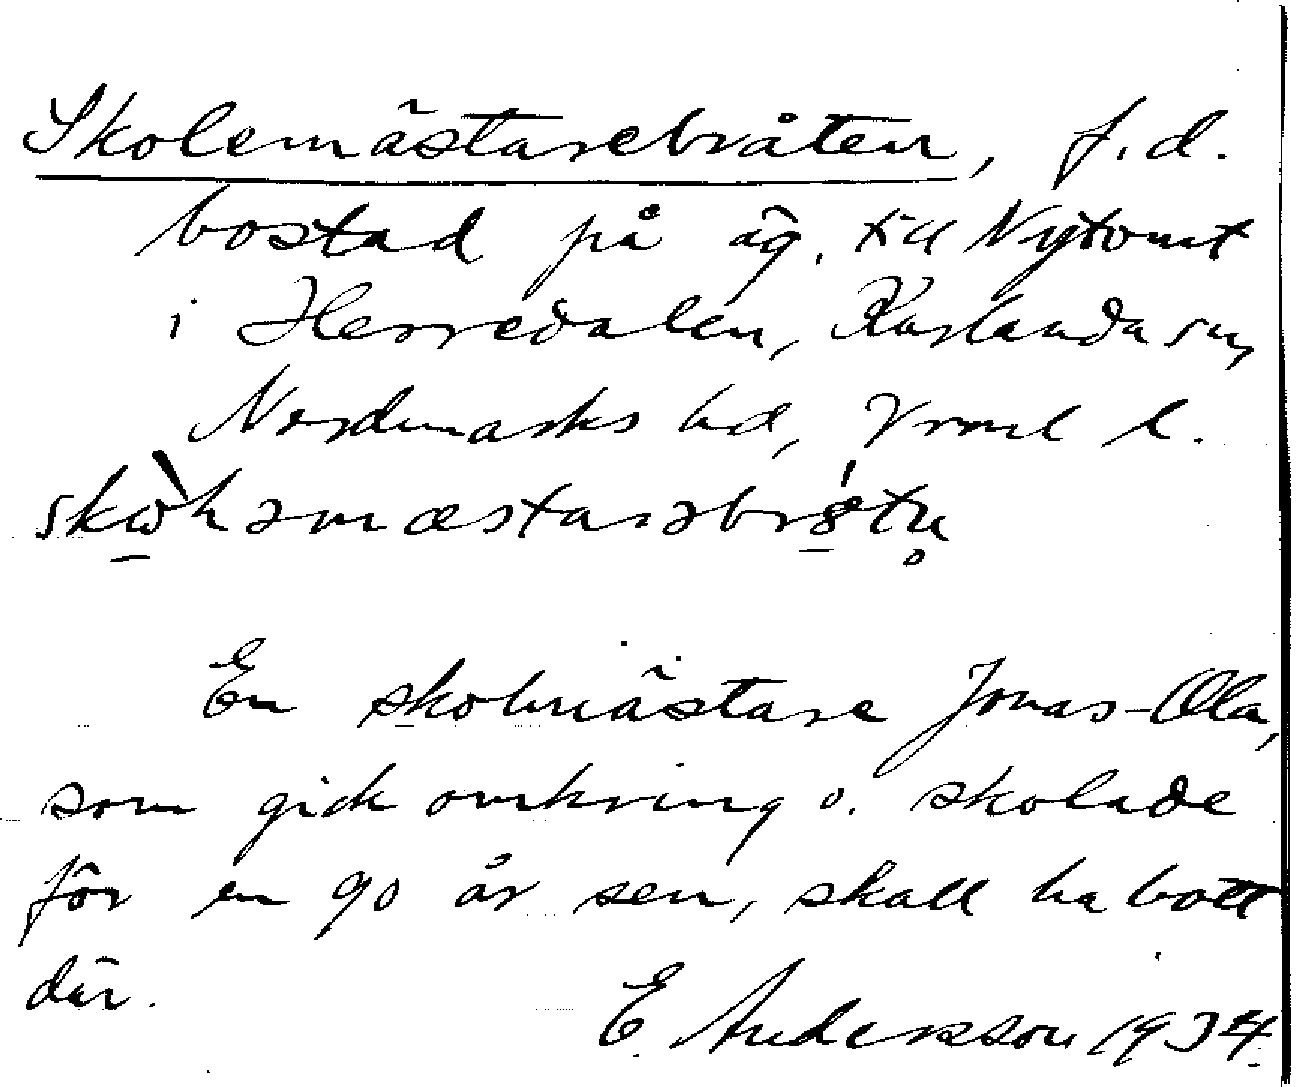 Skolemästarebråten, f.d.
bostad på äg. till Nytomt
i Herredalen, Karlanda sn,
Nordmarks hd, Vrml l.
En skolmästare Jonas-Ola,
som gick omkring o. skolade
för en 90 år sen, skall ha bott
där.
E. Andersson 1934